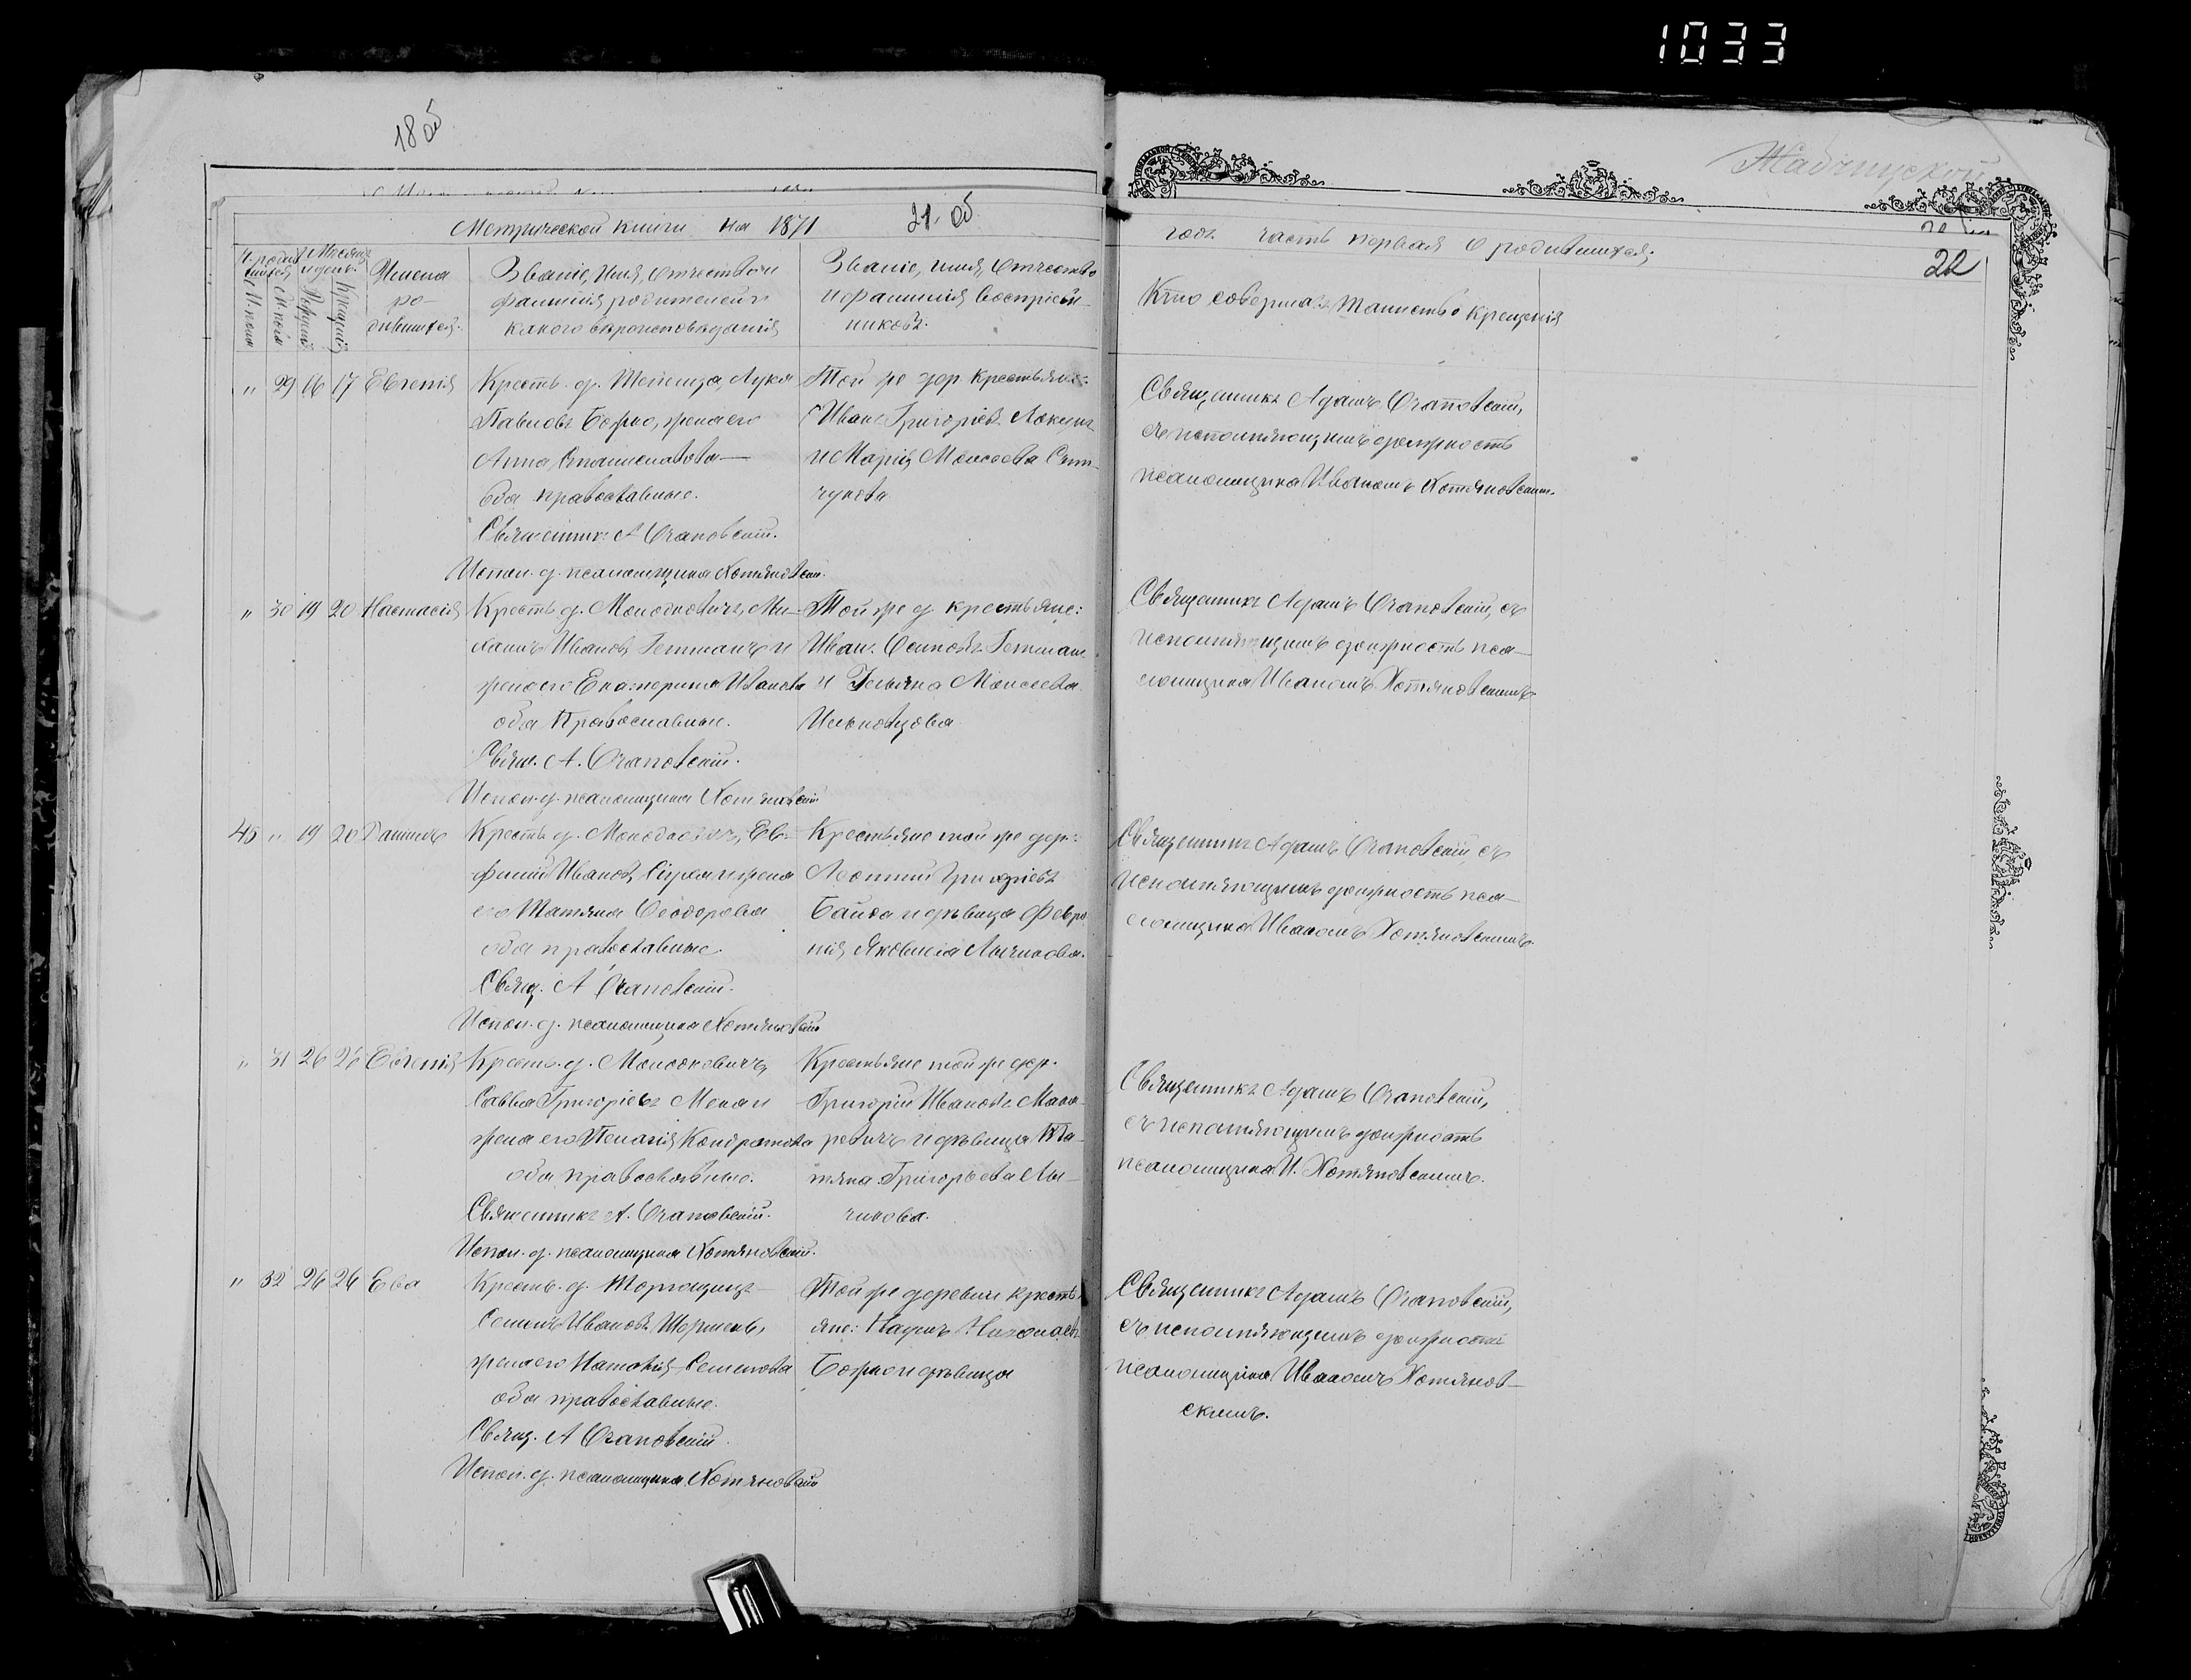 1033
18 об
Жабчицской
Метрической книги на 1871
21 об
годъ часть первая о родившихся;
22
Имена
ро-
дившихся.
Званіе, имя, отчество и
фамилія родителей и
какого вѣроисповѣданія
Званіе, имя, отчество
и фамилія воспріем-
никовъ.
Кто совершалъ таинство крещенія
" 29 16 17 Евгенія
Крестья. д.
Лука
Павловъ Божко, жена его
Анна
оба православные.
Священникъ А Очаповскій.
Испол. д. псаломщика Котяновскій.
Той же дер. крестьяне:
Иванъ Григоріевъ
и Марія Моисеева
чукова
Священникъ Адамъ Очаповскій,
съ исполняющимъ должность
псаломщика Иваномъ Котяновским.
" 30 19 20 Настасія
Кресть. д. Молотковичъ, Ми-
хаилъ Ивановъ Гетманъ и
жена его Екатерина Иванова
оба Православные.
Свящ. А. Очаповскій.
Испол. д. псаломщика Котяновскій
Той же д. крестьяне:
Иван. Осиповъ Гетман
и Ульяна Моисеева
Священникъ Адамъ Очаповскій, съ
исполняющимъ должность пса-
ломщика Иваномъ Котяновскимъ
45 " 19 20 Даниилъ
Кресть д. Молодковичъ, Ев-
фимій Ивановъ и жена
его Татяна Феодорова
оба православные.
Свящ. А Очаповскій.
Испол. д. псаломщика Котяновскій
Крестьяне той же дер.:
Леонтій Григоріевъ
Байда и дѣвица Февро
нія Яковлева Лычикова.
Священникъ Адамъ Очаповскій съ
исполняющимъ должность пса-
ломщика Иваномъ Котяновскимъ.
" 31 26 26 Евгенія
Кресть. д. Молодковичъ,
Савва Григоріевъ
жена его Пелагія Кондратова
оба православные.
Священникъ А. Очаповскій.
Испол. д. псаломщика Котяновскій.
Крестьяне той же дер.
Григорій Ивановъ Мака-
ревичъ и дѣвица Та-
тяна Григорьева Лы-
чикова.
Священникъ Адамъ Очаповскій,
съ исполняющимъ должность
псаломщика И. Котяновскимъ.
" 32 26 26 Ева
Кресть. д.
Семенъ Ивановъ
жена его Наталія Семенова
оба православные.
Свящ. А Очаповскій.
Испол. д. псаломщика Котяновскій
Той же деревни кресть-
яне: Наумъ Николаевъ
Божко и дѣвица
Священникъ Адамъ Очаповскій,
съ исполняющимъ должность
псаломщика Иваномъ Котянов-
скимъ.